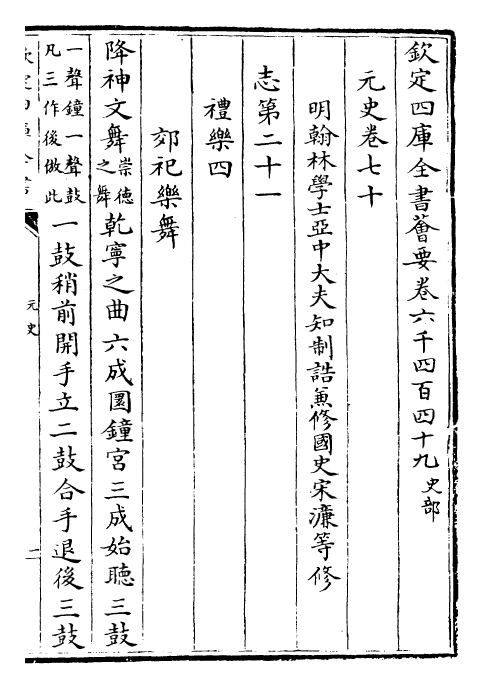 欽定四庫全書薈要卷六千四百四十九 史部
元史卷七十
明翰林學士亞中大夫知制誥兼修國史宋濂等修
志第二十一
禮樂四
郊祀樂舞
降神文舞崇德之舞乾寧之曲六成圜鐘宮三成始聽三鼓
一聲鐘一聲鼓凡三作後倣此一鼓稍前開手立二鼓合手退後三鼓
元史
二